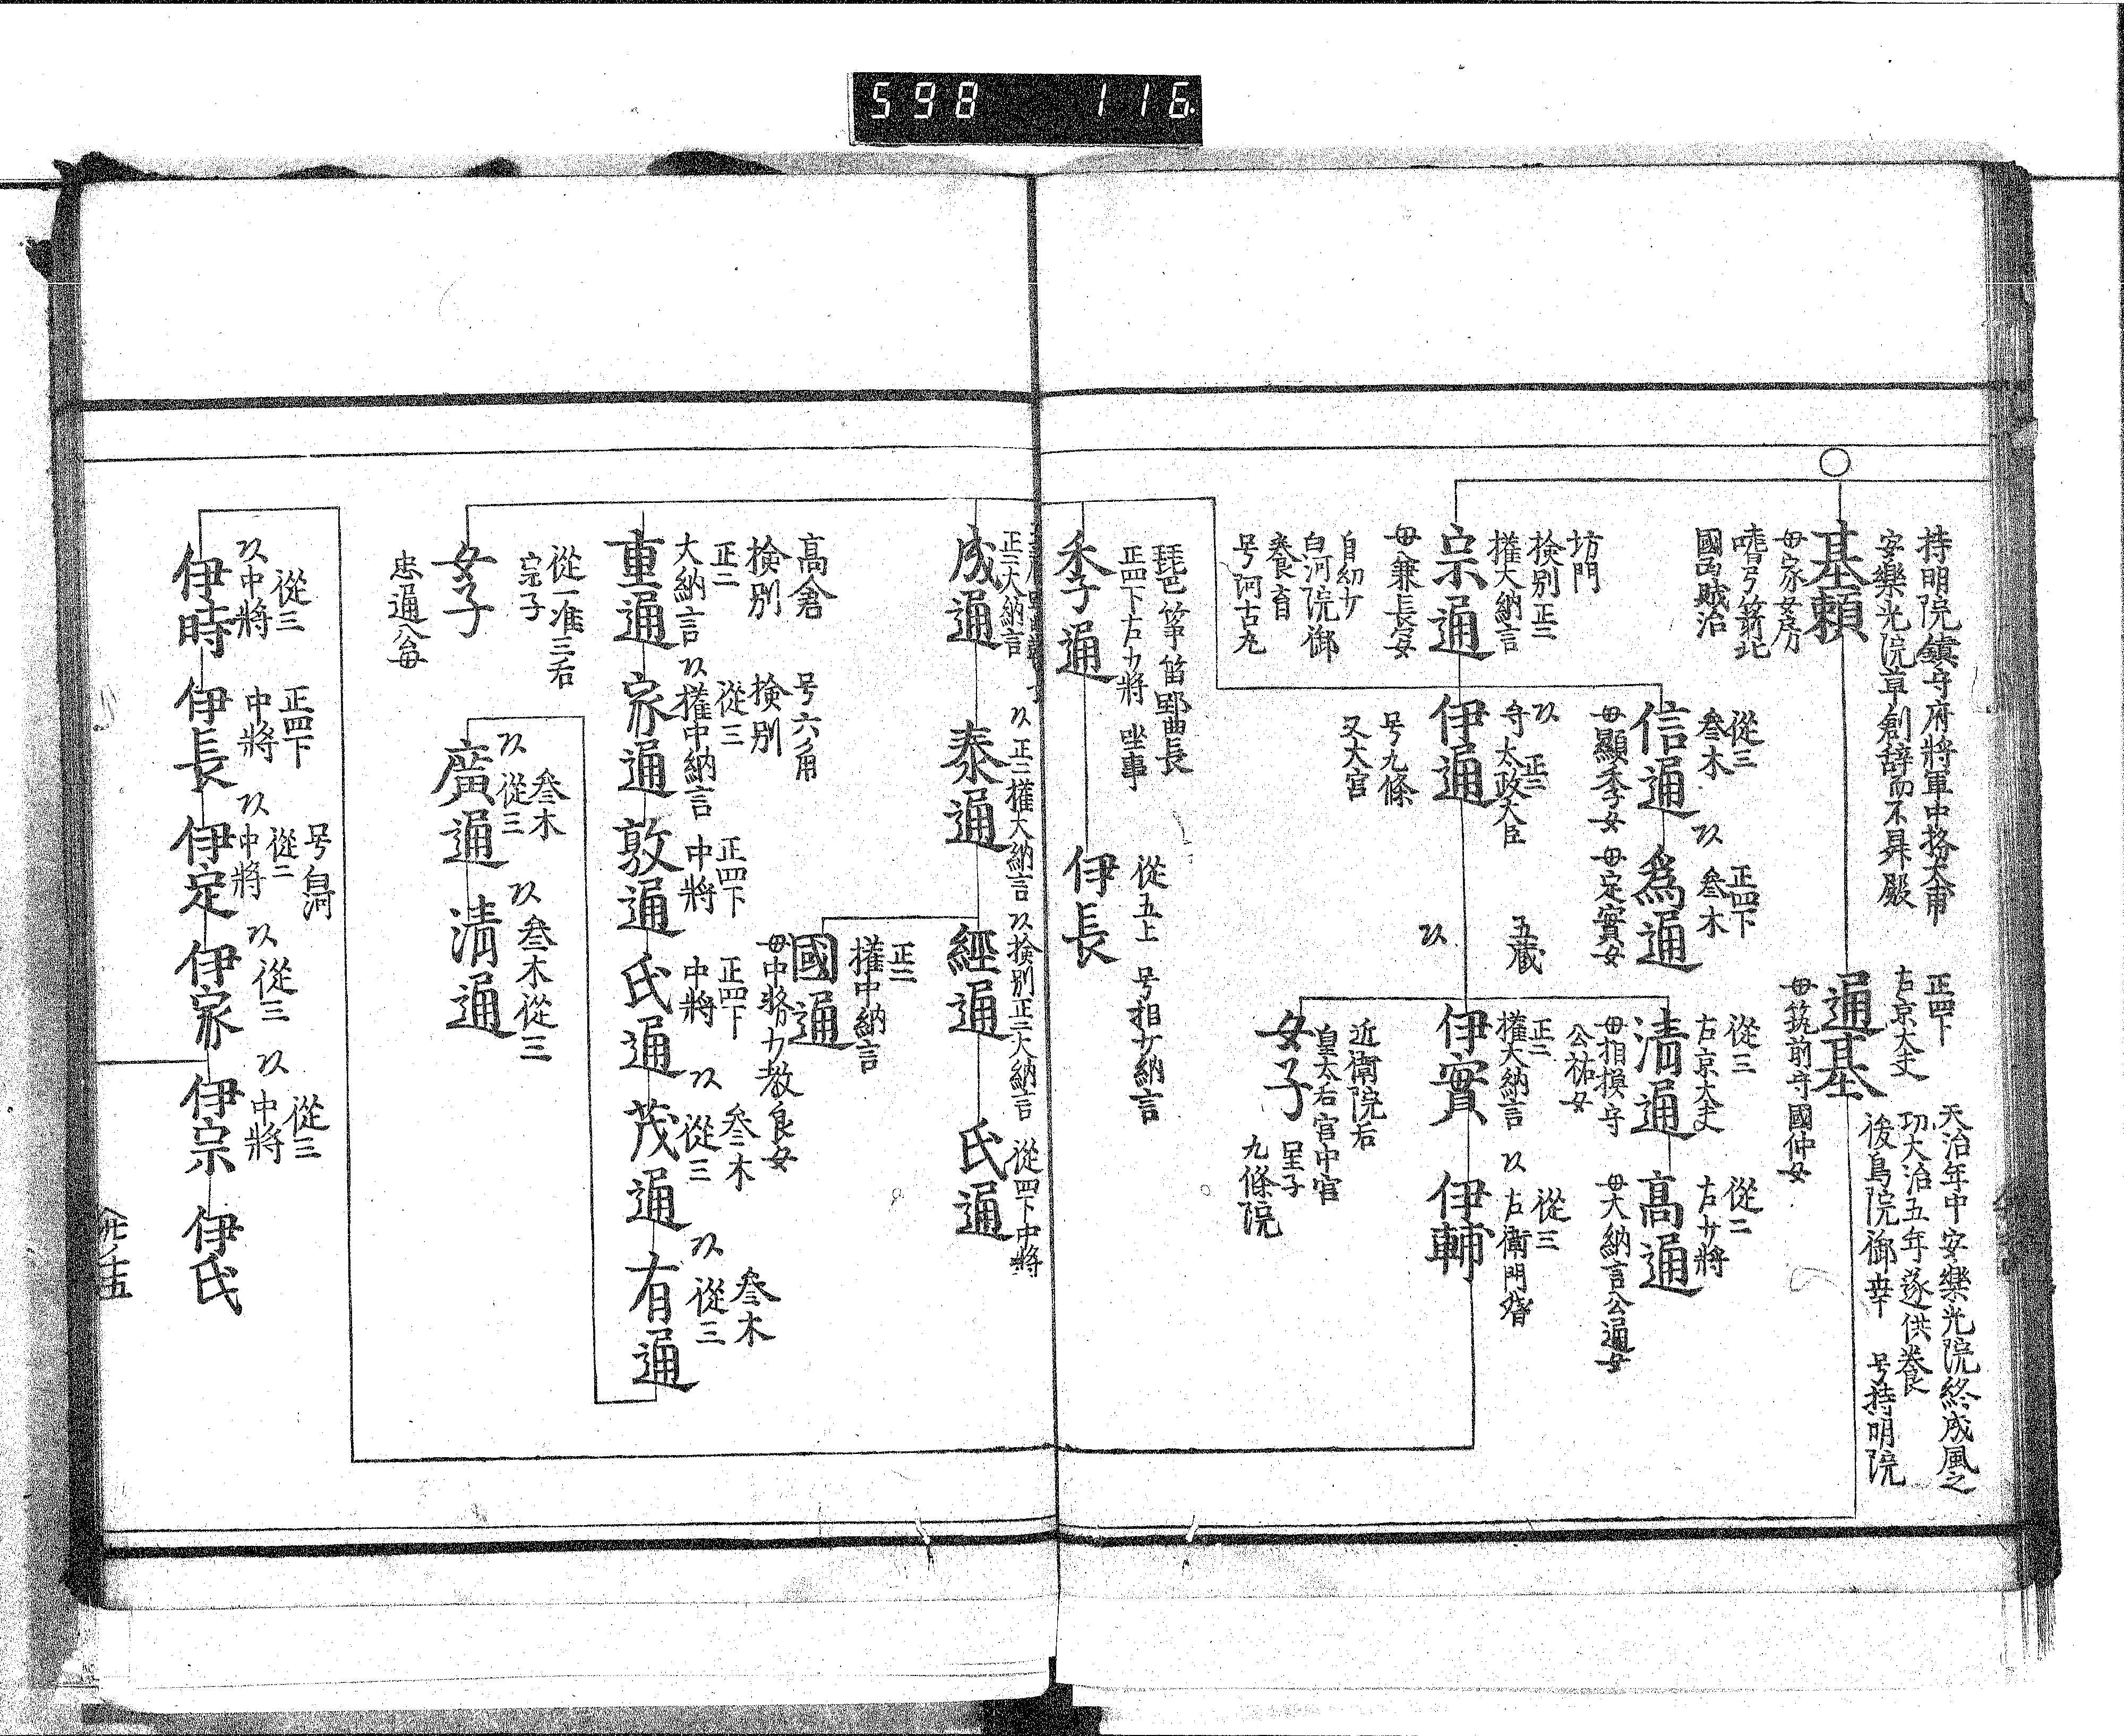 598 116
持明院 鎮守府將軍中格大甫
安樂光院草創辞而不昇殿
基頼
母家女房
嗜弓箭北
國凶賊治
正四下
右京大夫
通基
母筑前守國仲女
天治年中安樂光院終成風之
功大治五年遂供養
後鳥院御幸 号持明院
坊門
検別正二
權大納言
宗通
母兼長女
自幼少
白河院御
養育
号阿古丸
從三
叄木
信通
母顯季女
正四下
叄木
爲通
母定實女
從三
右京大夫
清通
母相摸守
公祐女
從二
右少將
高通
母大納言公通女
正二
太政大臣
伊通
号九條
又大宮
正二
權大納言
伊實
從三
右衛門督
伊輔
近衛院后
皇太后宮中宮
女子 呈子
九條院
琵琶 箏 笛 郢曲長
正四下右少將 坐事
季通
從五上 号相少納言
伊長
正二大納言
成通
正二權大納言
泰通
検別正二大納言
經通
從四下中將
氏通
正二
權中納言
國通
母中將少教良女
高倉
検別
正二
大納言
重通
号六角
検別
從三
權中納言
家通
正四下
中將
敦通
正四下
中將
氏通
叄木
從三
茂通
叄木
從三
有通
從一准三后
宗子
女子
忠通公母
叄木
從三
廣通
叄木從三
清通
從三
中將
伊時
正四下
中將
伊長
号白河
從二
中將
伊定
從三
伊家
從三
中將
伊宗
伊氏